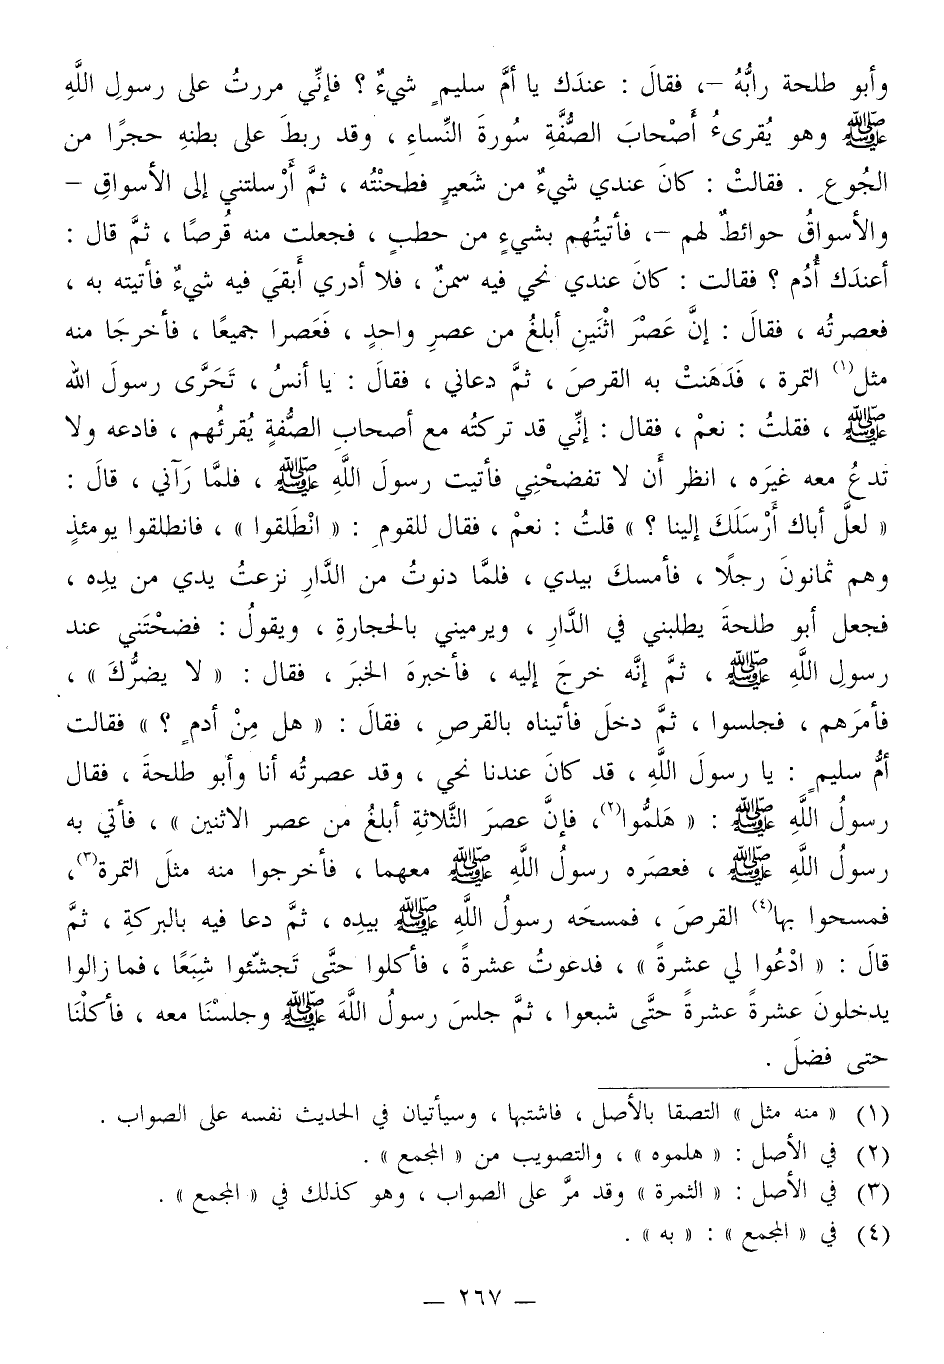 وأبو طلحة رابُّهُ –، فقالَ : عندَك يا أمَّ سليمٍ شيءٌ ؟ فإنِّي مررتُ على رسولِ اللَّهِ
ﷺ وهو يُقرىءُ أَصْحابَ الصُّفَّةِ سُورةَ النِّساءِ ، وقد ربطَ على بطنهِ حجرًا من
الجُوعِ . فقالتْ : كانَ عندي شيءٌ من شَعيرٍ فطحنْتُه ، ثمَّ أَرْسلتني إلى الأسواقِ –
والأسواقُ حوائطٌ لهم –، فأتيتُهم بشيءٍ من حطبٍ ، فجعلت منه قُرصًا ، ثمَّ قال :
أعندَك أُدُم ؟ فقالت : كانَ عندي نحي فيه سمنٌ ، فلا أدري أَبقيَ فيه شيءٌ فأتيته به ،
فعصرتُه ، فقالَ : إنَّ عَصْرَ اثْنَينِ أبلغُ من عصرِ واحدٍ ، فَعَصرا جميعًا ، فأخرجَا منه
مثل(١) التمرة ، فَدَهَنتْ به القرصَ ، ثمَّ دعاني ، فقالَ : يا أنسُ ، تَحَرَّى رسولَ الله
ﷺ ، فقلتُ : نعمْ ، فقال : إنِّي قد تركتُه مع أصحابِ الصُّفةِ يُقرئُهم ، فادعه ولا
تدعُ معه غيرَه ، انظر أَن لا تفضحْنِي فأتيت رسولَ اللَّهِ ﷺ ، فلمَّا رَآني ، قالَ :
« لعلَّ أباك أَرْسَلَكَ إلينا ؟ » قلتُ : نعمْ ، فقال للقومِ : « انْطَلقوا » ، فانطلقوا يومئذٍ
وهم ثمانونَ رجلًا ، فأمسكَ بيدي ، فلمَّا دنوتُ من الدَّارِ نزعتُ يدي من يدِه ،
فجعل أبو طلحةَ يطلبني في الدَّارِ ، ويرميني بالحجارةِ ، ويقولُ : فضحْتَني عند
رسولِ اللَّهِ ﷺ ، ثمَّ إنَّه خرجَ إليه ، فأخبرهَ الخبرَ ، فقال : « لا يضرُّكَ » ،
فأمرَهم ، فجلسوا ، ثمَّ دخلَ فأتيناه بالقرصِ ، فقالَ : « هل مِنْ أدمٍ ؟ » فقالت
أمُّ سليمٍ : يا رسولَ اللَّهِ ، قد كانَ عندنا نحي ، وقد عصرتُه أنا وأبو طلحةَ ، فقال
رسولُ اللَّهِ ﷺ : « هَلمُّوا(٢)، فإنَّ عصرَ الثَّلاثةِ أبلغُ من عصر الاثنين » ، فأتي به
رسولُ اللَّهِ ﷺ ، فعصرَه رسولُ اللَّهِ ﷺ معهما ، فأخرجوا منه مثلَ التمرة(٣)،
فمسحوا بها(٤) القرصَ ، فمسحَه رسولُ اللَّهِ ﷺ بيدِه ، ثمَّ دعا فيه بالبركةِ ، ثمَّ
قالَ : « ادْعُوا لي عشرةً » ، فدعوتُ عشرةً ، فأكلوا حتَّى تَجشّئوا شِبَعًا ، فما زالوا
يدخلونَ عشرةً عشرةً حتَّى شبعوا ، ثمَّ جلسَ رسولُ اللَّهَ ﷺ وجلسْنَا معه ، فأكلْنَا
حتى فضلَ .
(١) « منه مثل » التصقا بالأصل ، فاشتبها ، وسيأتيان في الحديث نفسه على الصواب .
(٢) في الأصل : « هلموه » ، والتصويب من « المجمع » .
(٣) في الأصل : « الثمرة » وقد مرَّ على الصواب ، وهو كذلك في « المجمع » .
(٤) في « المجمع » : « به » .
– ٢٦٧ –